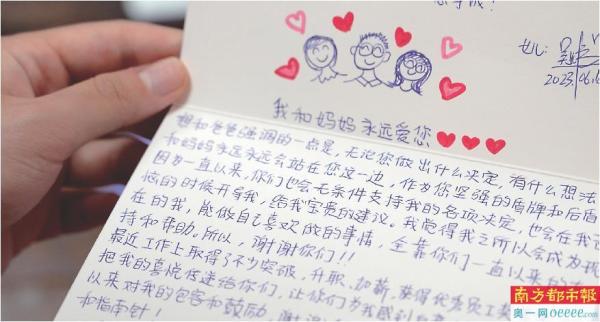 女儿:
2023.06.
我和妈妈永远爱您
想和爸爸强调的一点是,无论您做出什么决定,有什么想法
和妈妈永远永远会站在您这一边,作为您坚强的盾牌和后盾
因为一直以来,你们也会无条件支持我的各项决定,也会在我
的时候开导我,给我宝贵的建议。我觉得我之所以会成为我
在的我,能做自己喜欢做的事情,全靠你们一直以来的
持和帮助。所以,谢谢你们!!
最近工作上取得了不少突破,升职、加薪、获得优秀员工奖
把我的喜悦传递给你们,让你们为我感到自
以来对我的包容和鼓励,谢谢
和指南针!
南方都市报
奥一网oeeee.com